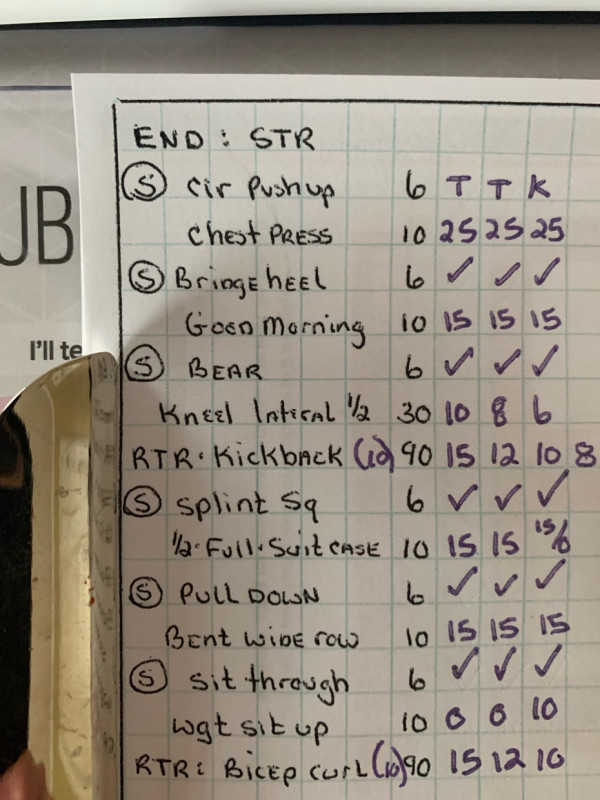 END: STR
Ⓢ Cir Pushup 6 T T K
Chest PRESS 10 25 25 25
Ⓢ Bringe heel 6 ✓ ✓ ✓
Goen Morning 10 15 15 15
Ⓢ BEAR 6 ✓ ✓ ✓
Kneel Lateral 1/2 30 10 8 6
RTR: Kickback (10) 90 15 12 10 8
Ⓢ Splint Sq 6 ✓ ✓ ✓
1/2·Full·Suitcase 10 15 15
Ⓢ PULL DOWN 6 ✓ ✓ ✓
Bent wide row 10 15 15 15
Ⓢ sit through 6 ✓ ✓ ✓
wgt sit up 10 0 0 10
RTR: Bicep curl (10) 90 15 12 10
UB
I'll te